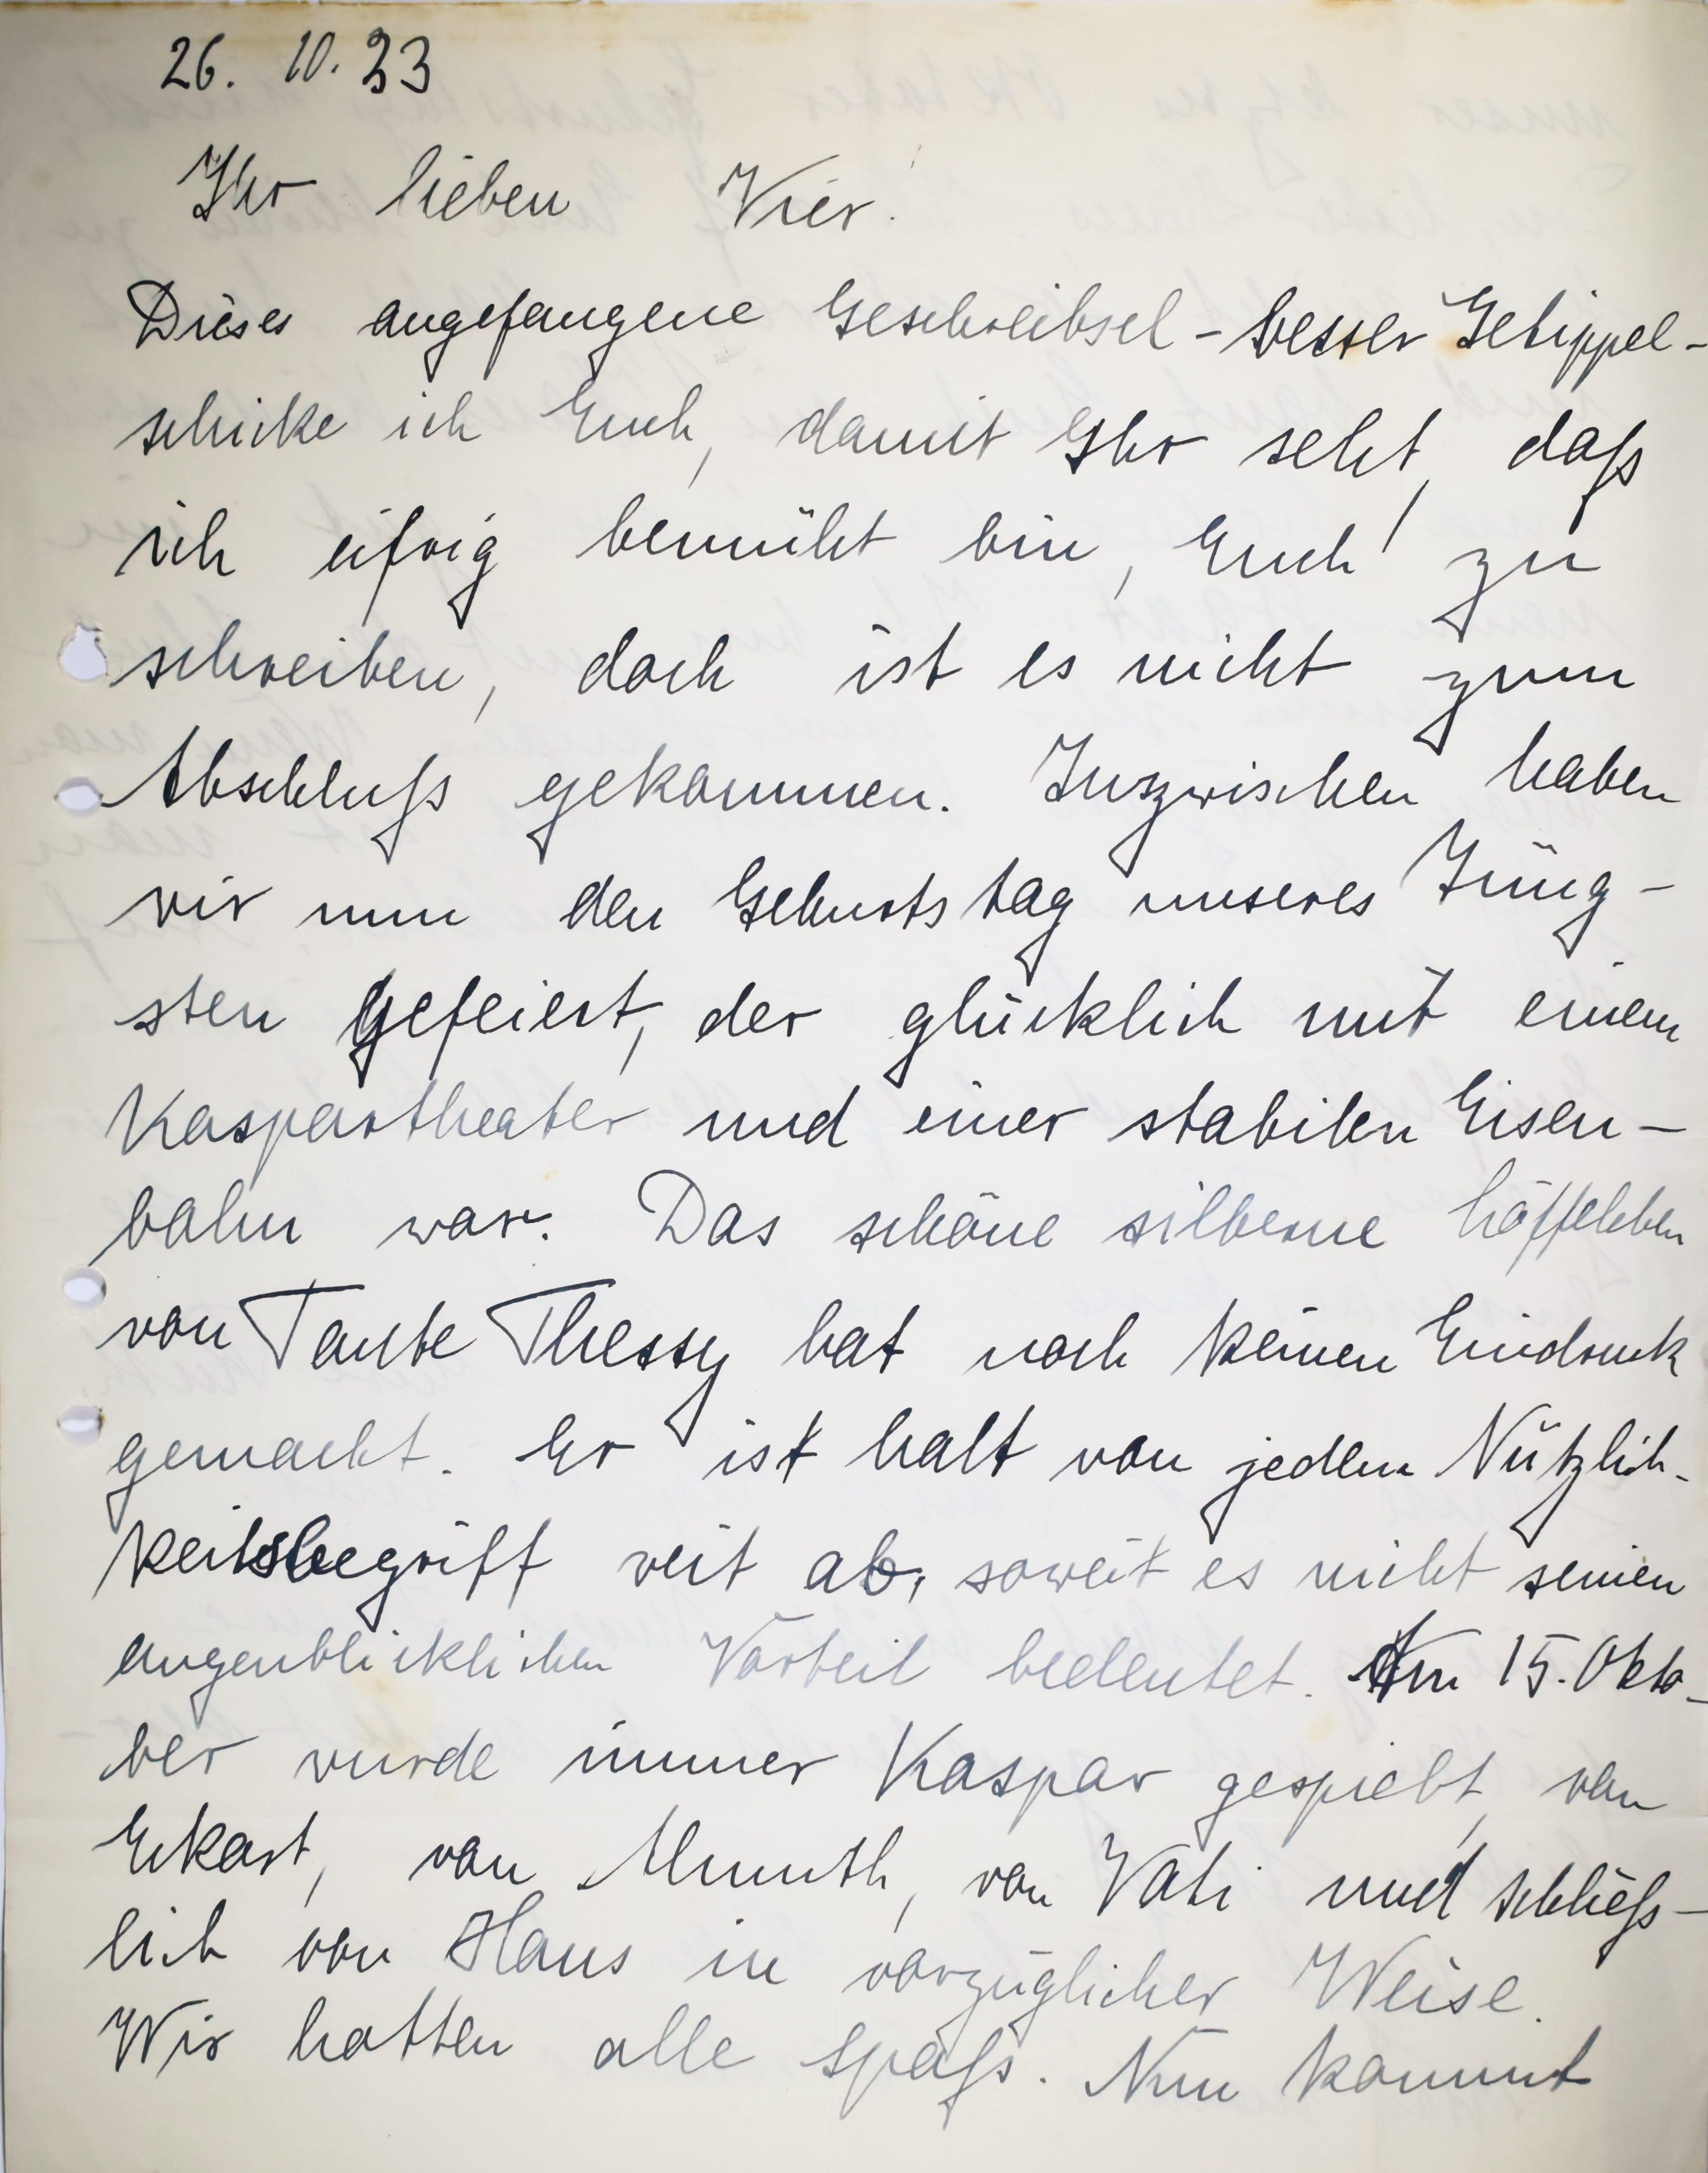 26. 10. 33
Ihr lieben Vier!
Dieses angefangene Geschreibsel - besser Getippel -
schicke ich Euch, damit Ihr seht, daß
ich eifrig bemüht bin, Euch zu
schreiben, doch ist es nicht zum
Abschluß gekommen. Inszwischen haben
wir nun den Geburtstag unseres Jüng-
sten gefeiert, der glücklich mit einem
Kaspartheater und einer stabilen Eisen-
bahn war. Das schöne silberne Löffelchen
von Tante Thessy hat noch keinen Eindruck
gemacht. Er ist halt von jedem Nützlich-
keitsbegriff weit ab, soweit es nicht seinen
augenblicklichen Vorteil bedeutet. Am 15. Okto-
ber wurde immer Kaspar gespielt, von
Eckart, von Almuth, von Vati und schließ-
lich von Hans in vorzüglicher Weise.
Wir hatten alle Spaß. Nun kommt